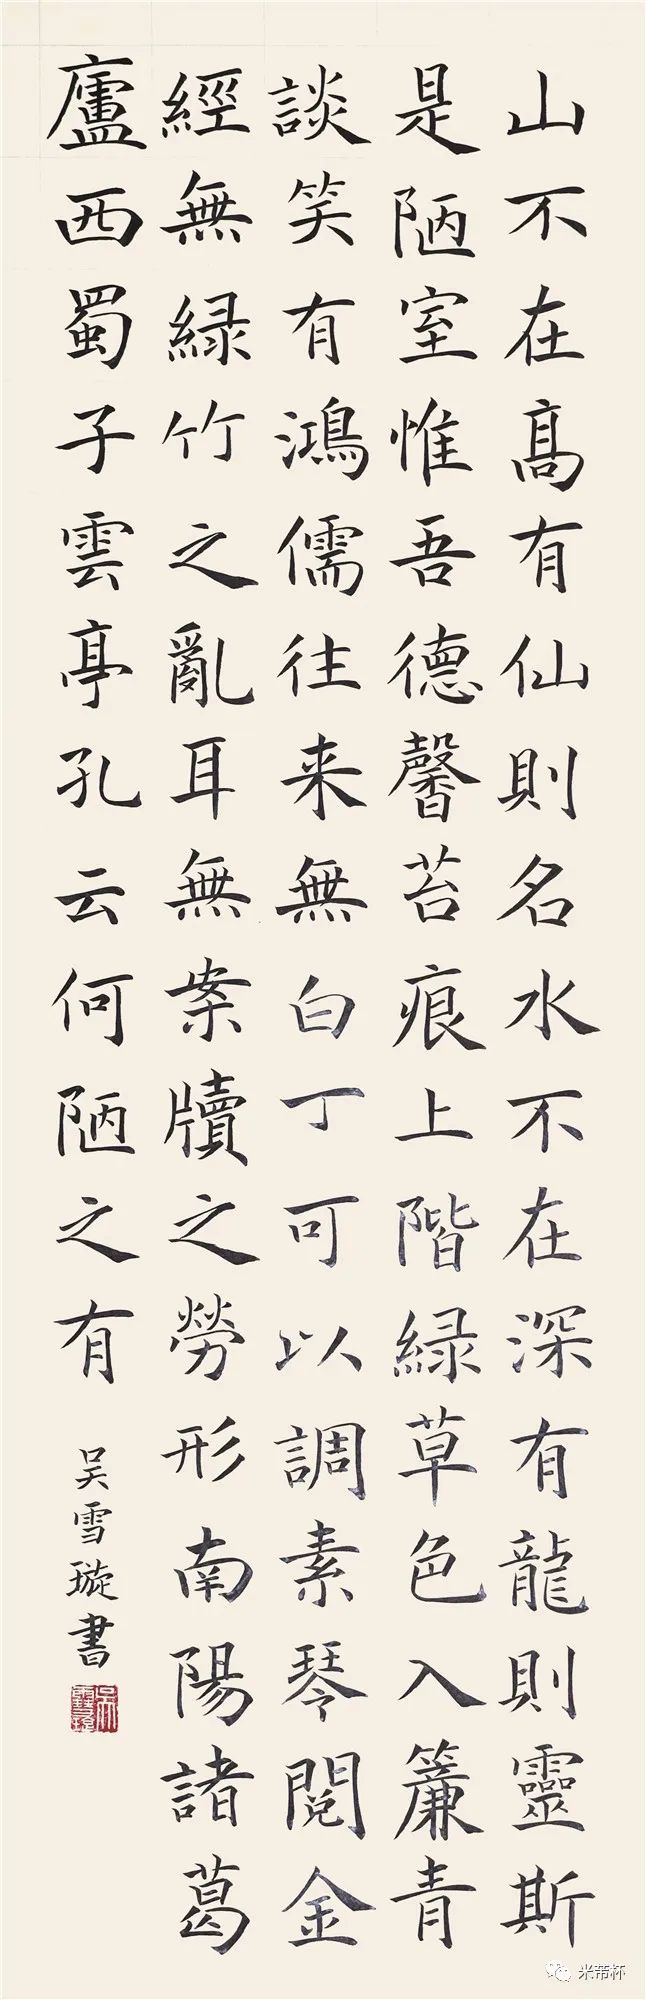 山不在髙有仙則名水不在深有龍則靈斯
是陋室惟吾德馨苔痕上階緑草色入簾青
談笑有鴻儒往来無白丁可以調素琴閲金
經無緑竹之亂耳無案牘之勞形南陽諸葛
廬西蜀子雲亭孔云何陋之有
吴雪璇書
米芾杯